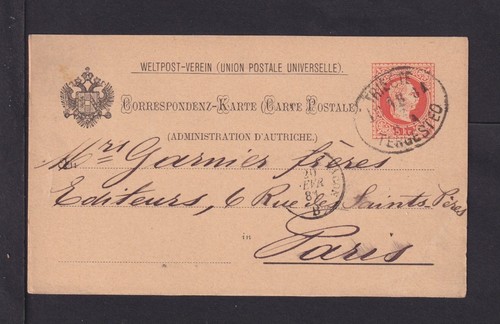 WELTPOST-VEREIN (UNION POSTALE UNIVERSELLE).
CORRESPONDENZ-KARTE (CARTE POSTALE)
(ADMINISTRATION D'AUTRICHE).
TRIESTE
TERGESTEO
An
Mrs Garnier frères
Editeurs, 6 Rue des Saints Pères
FEVR
in
Paris